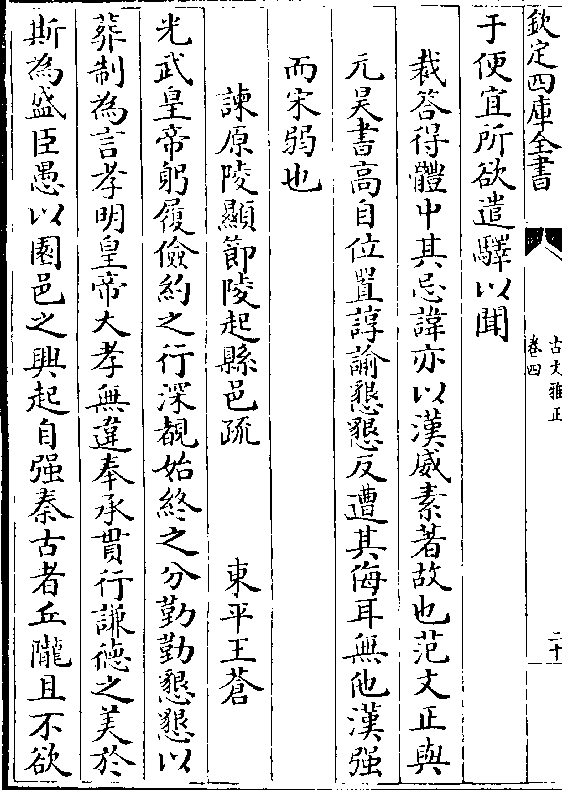 欽定四庫全書
古文雅正
卷四
二十
于便宜所欲遣驛以聞
裁答得體中其忌諱亦以漢威素著故也范文正與
元昊書高自位置諄諭懇懇反遭其侮耳無他漢强
而宋弱也
諫原陵顯節陵起縣邑疏 東平王蒼
光武皇帝躬履儉約之行深覩始終之分勤勤懇懇以
葬制為言孝明皇帝大孝無違奉承貫行謙徳之美於
斯為盛臣愚以園邑之興起自强秦古者丘隴且不欲